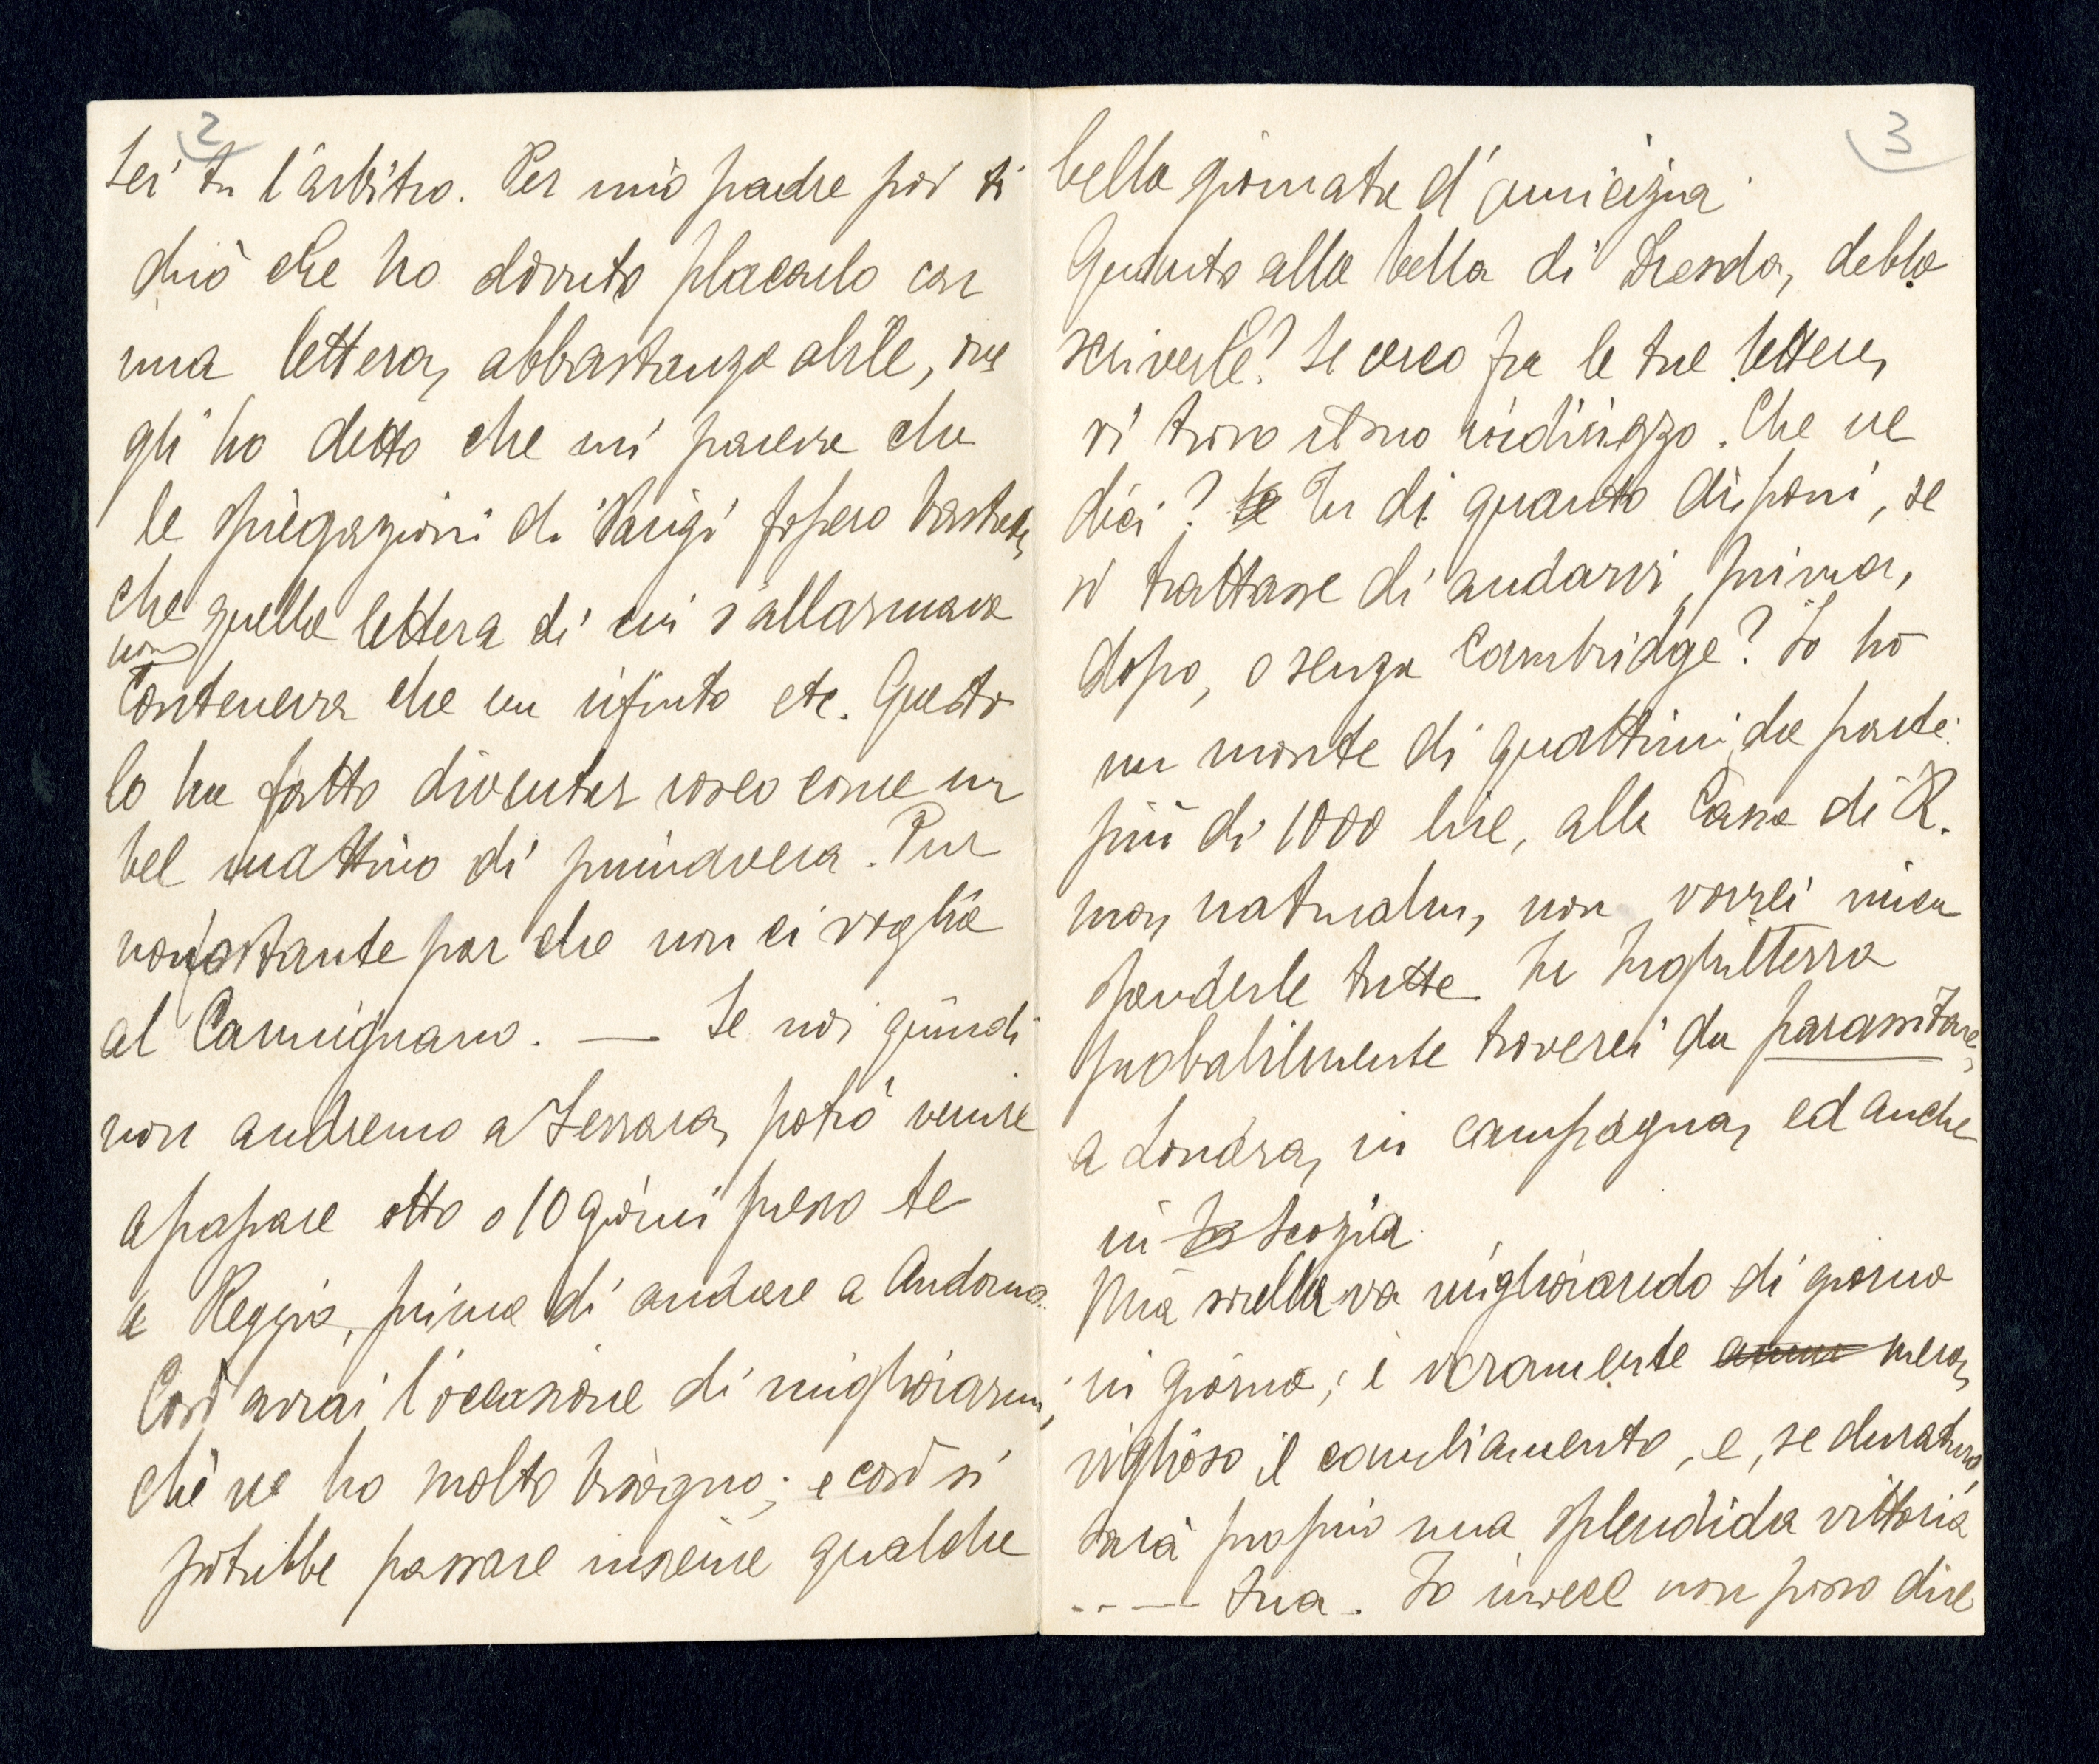 2
sei tu l'arbitro. Per mio padre poi ti
dirò che ho dovuto placarlo con
una lettera, abbastanza abile, ove
gli ho detto che mi pareva che
le spiegazioni di Parigi fossero bastate,
che quella lettera di cui s'allarmava
non
conteneva che un rifiuto etc. Questo
lo ha fatto diventar roseo come un
bel mattino di primavera. Pur
nonostante par che non ci voglia
al Carmignano. — Se noi quindi
non andremo a Ferrara, potrò venire
a passare otto o 10 giorni presso te
a Reggio, prima di andare a Andorno.
Così avrai l'occasione di migliorarmi,
chè ne ho molto bisogno; e così si
potrebbe passare insieme qualche
3
bella giornata d'amicizia.
Quanto alla bella di Dresda, debbo
scriverle? Se cerco fra le tue lettere,
vi trovo il suo indirizzo. Che ne
dici? Tu di quanto disponi, se
si trattasse di andarvi, prima,
dopo, o senza Cambridge? Io ho
un monte di quattrini da parte:
più di 1000 lire, alla Cassa di R.
ma, naturalm, non vorrei mica
spenderle tutte. In Inghilterra
probabilmente troverei da parassitare,
a Londra, in campagna, ed anche
in Scozia.
Mia sorella va migliorando di giorno
in giorno; è veramente mera,
viglioso il cambiamento, e, se duraturo,
sarà proprio una splendida vittoria
..—— tua. Io invece non posso dire